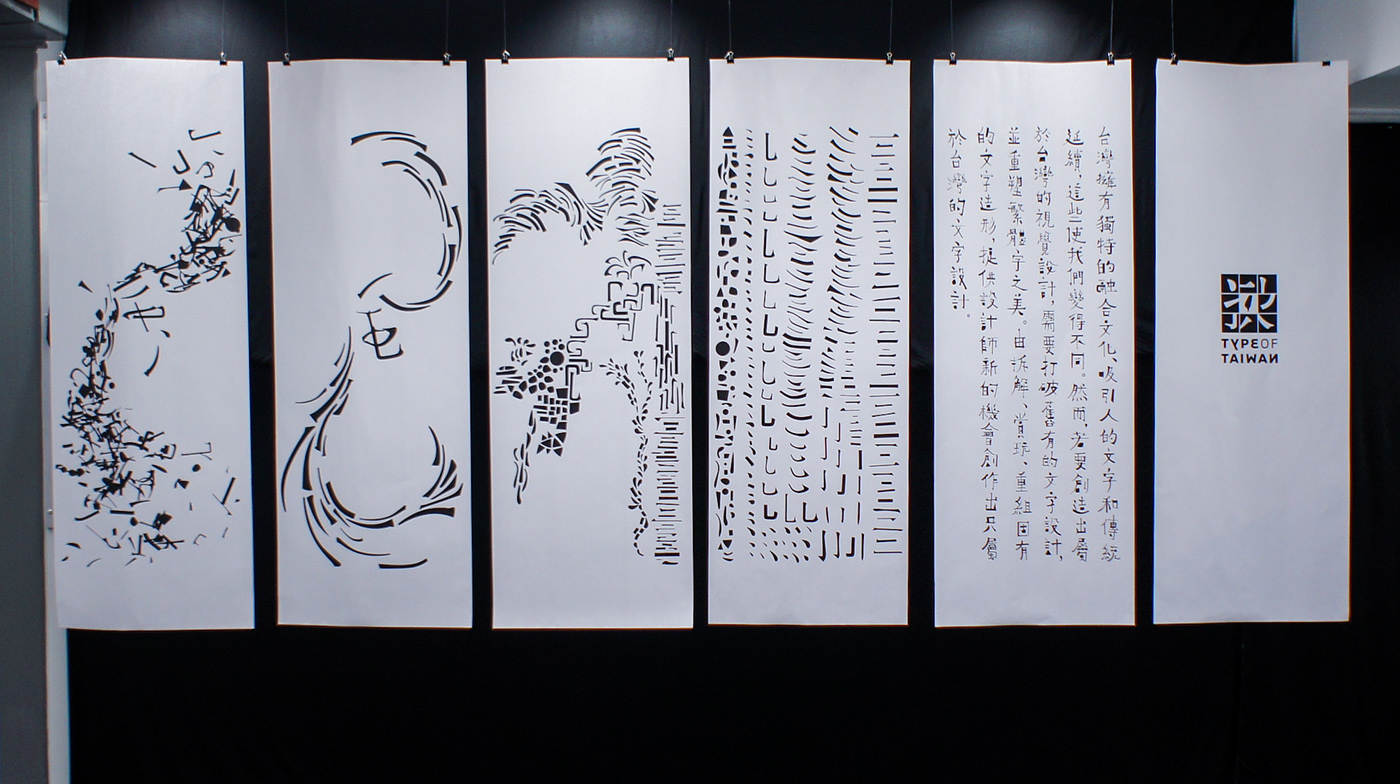 台灣擁有獨特的融合文化、吸引人的文字和傳統
延續，這些使我們變得不同。然而，若要創造出屬
於台灣的視覺設計，需要打破舊有的文字設計，
並重塑繁體字之美。由拆解、賞玩、重組固有
的文字造形，提供設計師新的機會創作出只屬
於台灣的文字設計。
TYPE OF
TAIWAN